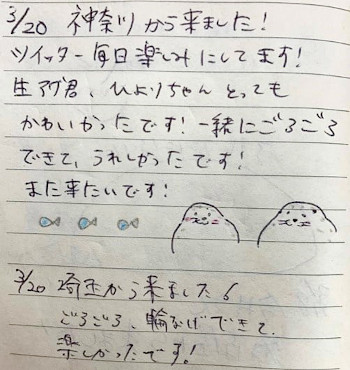 3/20 神奈川から来ました!
ツイッター毎日楽しみにしてます!
生アグ君、ひよりちゃん とっても
かわいかったです! 一緒にごろごろ
できて、うれしかったです!
また来たいです!
3/20 埼玉から来ました
ごろごろ、輪なげできて、
楽しかったです!